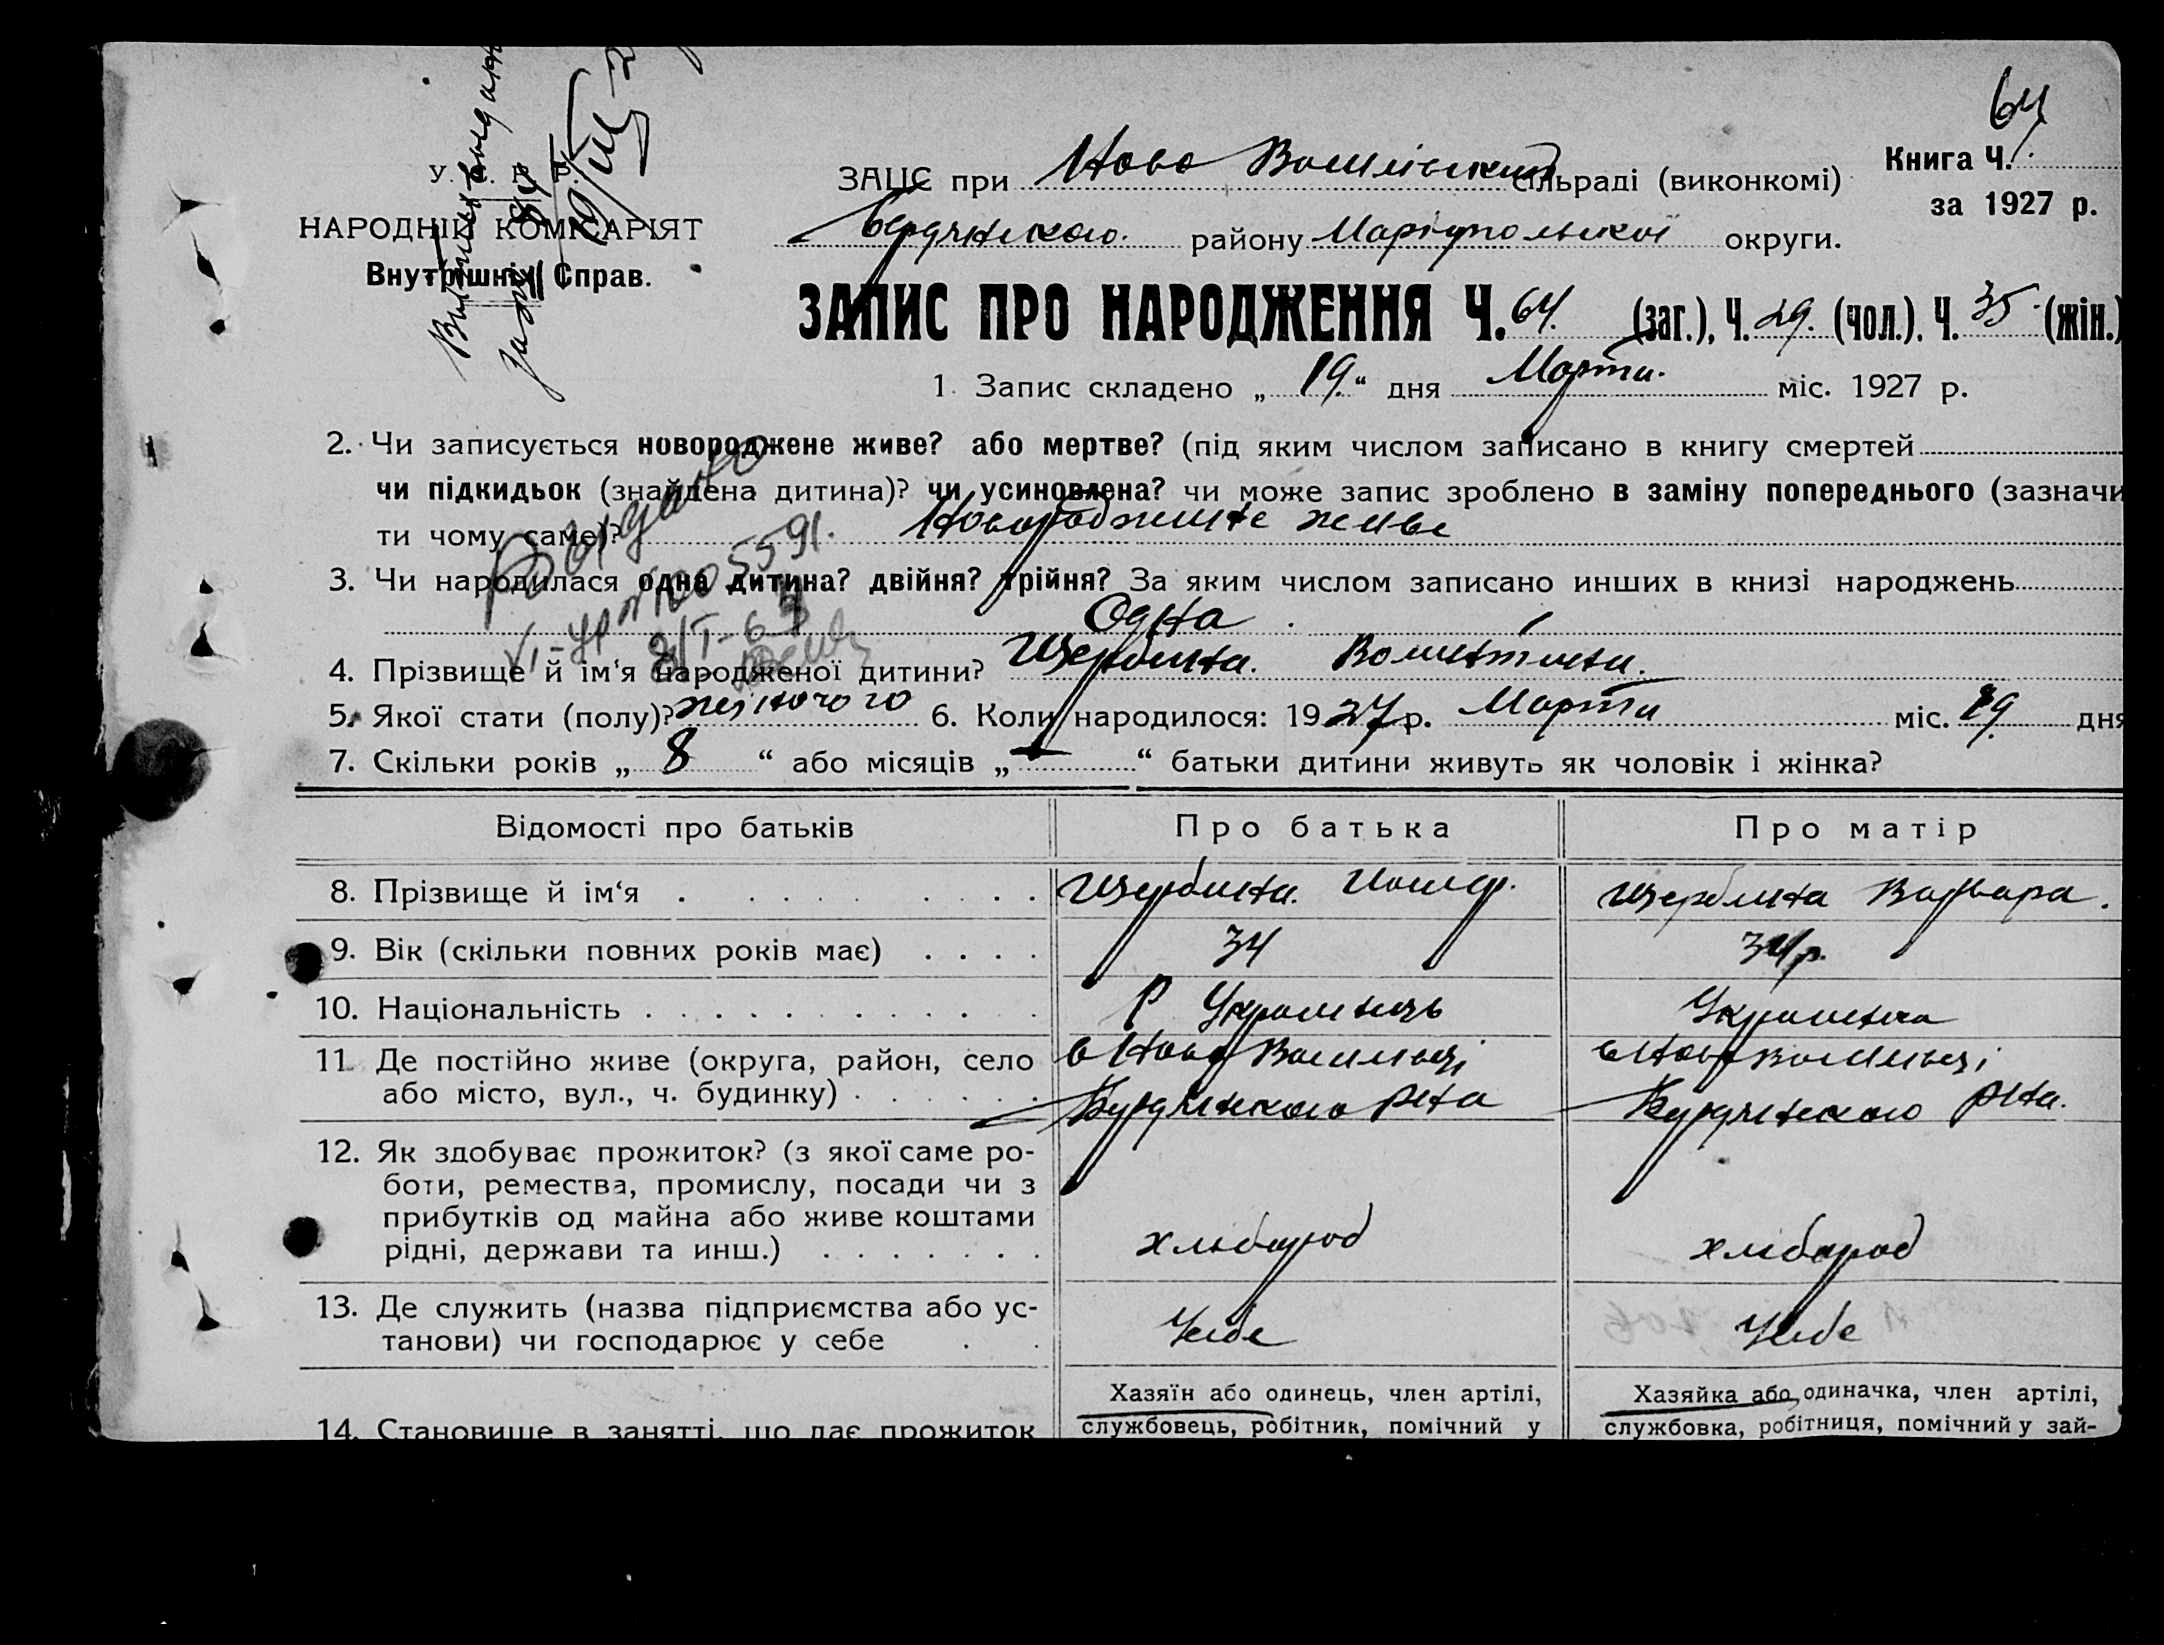 64
У. С. Р. Р.
НАРОДНІЙ КОМІСАРІЯТ
Внутрішніх Справ.
ЗАПИС при Ново Василівській сільраді (виконкомі)
Книга Ч.
за 1927 р.
Бердянського району Маріупольської округи.
ЗАПИС ПРО НАРОДЖЕННЯ Ч. 64. (заг.), Ч. 29. (чол.). Ч. 35 (жін.)
1. Запис складено „ 19. “ дня Марта. міс. 1927 р.
2. Чи записується новороджене живе? або мертве? (під яким числом записано в книгу смертей
чи підкидьок (знайдена дитина)? чи усиновлена? чи може запис зроблено в заміну попереднього (зазначи
ти чому саме)? Новороджене живе
Видано
3. Чи народилася одна дитина? двійня? трійня? За яким числом записано инших в книзі народжень
Одна
4. Прізвище й ім‘я народженої дитини? Щербина. Валентина.
5. Якої стати (полу)? жіночого 6. Коли народилося: 1927 р. Марта міс. 19. дня
7. Скільки років „ 8 “ або місяців „ — “ батьки дитини живуть як чоловік і жінка?
Відомості про батьків Про батька Про матір
8. Прізвище й ім‘я Щербина. Щербина Варвара.
9. Вік (скільки повних років має) 34 34 р.
10. Національність Українець Українка
11. Де постійно живе (округа, район, село в Ново Василівці в Ново Василівці
або місто, вул., ч. будинку) Бердянського р-на Бердянського р-на.
12. Як здобуває прожиток? (з якої саме ро-
боти, ремества, промислу, посади чи з
прибутків од майна або живе коштами
рідні, держави та инш.) хлібороб хлібороб
13. Де служить (назва підприємства або ус-
танови) чи господарює у себе У себе У себе
Хазяїн або одинець, член артілі, Хазяйка або одиначка, член артілі,
14. Становище в занятті, що дає прожиток службовець, робітник, помічний у службовка, робітниця, помічний у зай-